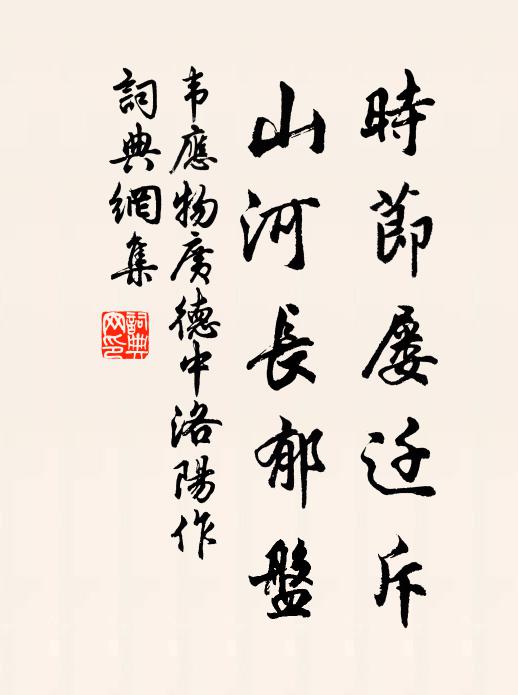 時節屡迁斥
山河長郁盤
韦應物廣德中洛陽作
詞典網集
詞典網印